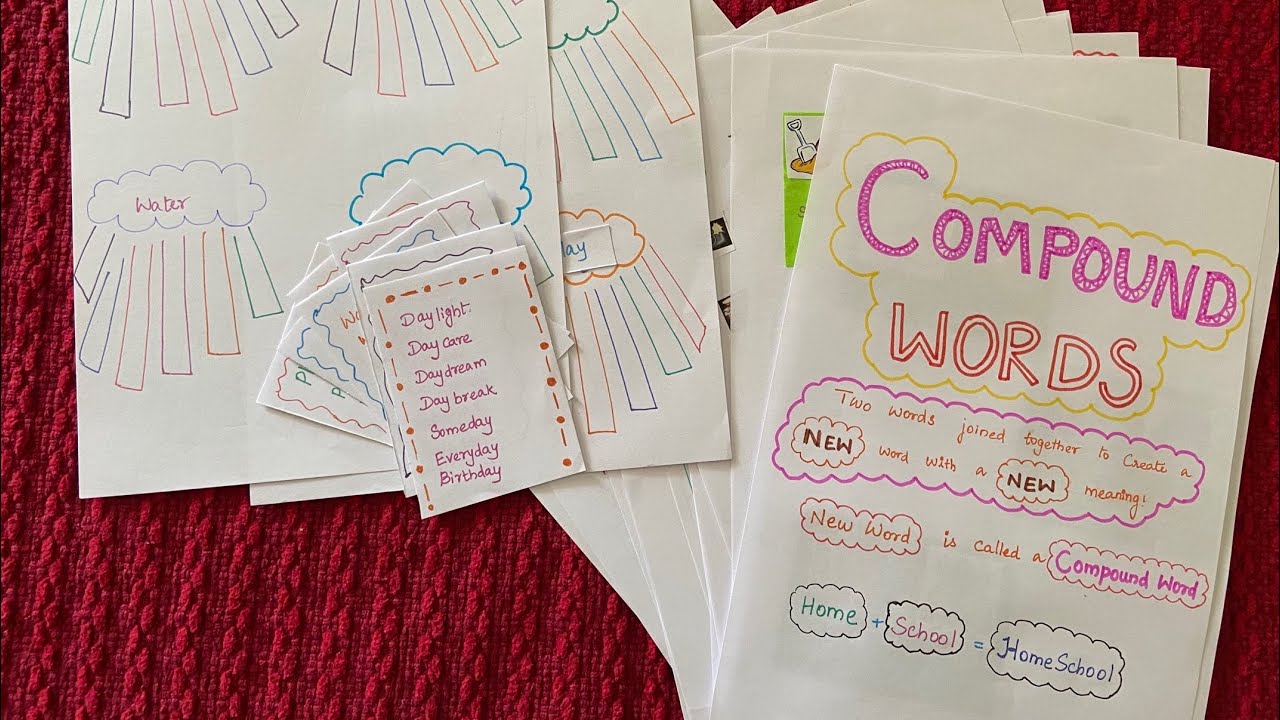 Water
Daylight.
Day care
Daydream
Day break
Someday
Everyday
Birthday
COMPOUND
WORDS
Two words joined together to Create a
NEW word with a NEW meaning!
New Word is called a Compound Word
Home + School = HomeSchool